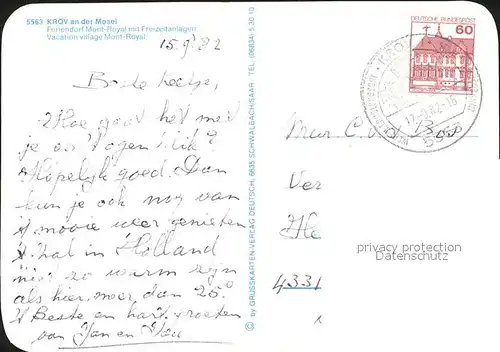 5563 KRÖV an der Mosel
Feriendorf Mont-Royal mit Freizeitanlagen
Vacation village Mont-Royal
15.9.'82
Beste
Hoe gaat het met
je
Hopelijk goed. Dan
kun je ook nog van
't mooie weer genieten
't zal in Holland
niet zo warm zijn
als hier, meer dan 25°
't Beste en hart. groeten
van Jan en
© by GRUSSKARTEN-VERLAG DEUTSCH, 6635 SCHWALBACH/SAAR · TEL. (06834) 5 30 10
DEUTSCHE BUNDESPOST
60
KRÖV
17.-9.82-16
5563
Mevr. C.
Ver
He
4331
privacy protection
Datenschutz